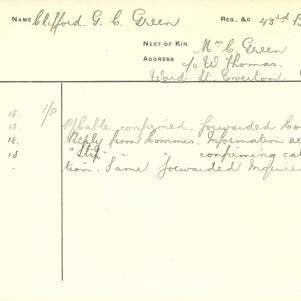 NAME Clifford G. C. Green REG., &c. 43rd B
NEXT OF KIN Mrs C. Green
ADDRESS c/o W Thomas.
Ward St. Everton.
15. 1/P
15. P/Cable confirmed. forwarded Co
15. Reply from Commrs. Information re
15 " Slip " - " confirming cab
- tion. Same forwarded Inquire